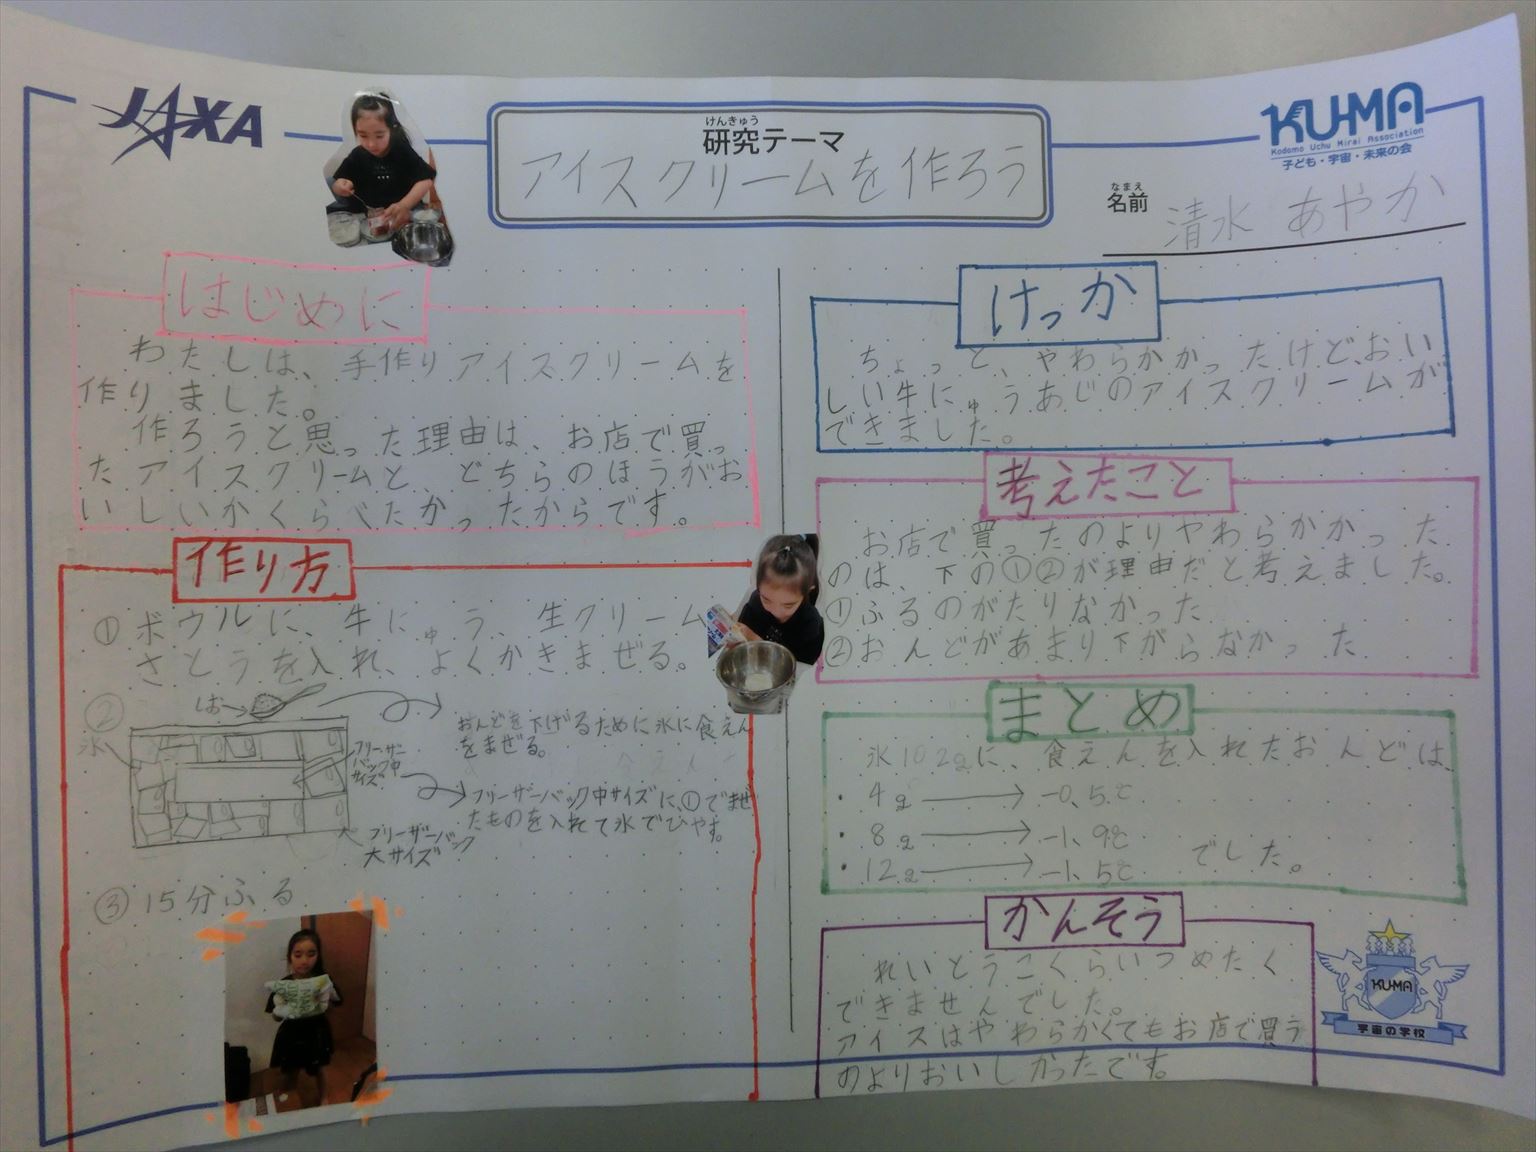 JAXA
けんきゅう
研究テーマ
アイスクリームを作ろう
KU-MA
Kodomo Uchu Mirai Association
子ども・宇宙・未来の会
なまえ
名前
清水 あやか
はじめに
わたしは、手作りアイスクリームを
作りました。
作ろうと思った理由は、お店で買っ
たアイスクリームと、どちらのほうがお
いしいかくらべたかったからです。
作り方
①ボウルに、牛にゅう、生クリーム
さとうを入れ、よくかきまぜる。
②
しお
氷
フリーザー
バック中
サイズ
おんどを下げるために氷に食えん
をまぜる。
フリーザーバック中サイズに、①でまぜ
たものを入れて氷でひやす。
フリーザーバック
大サイズ
③15分ふる
けっか
ちょっと、やわらかかったけど、おい
しい牛にゅうあじのアイスクリームが
できました。
考えたこと
お店で買ったのよりやわらかかった
のは、下の①②が理由だと考えました。
①ふるのがたりなかった
②おんどがあまり下がらなかった
まとめ
氷102gに、食えんを入れたおんどは
・4g→-0.5℃
・8g→-1.9℃
・12g→-1.5℃ でした。
かんそう
れいとうこくらいつめたく
できませんでした。
アイスはやわらかくてもお店で買う
のよりおいしかったです。
KU-MA
宇宙の学校